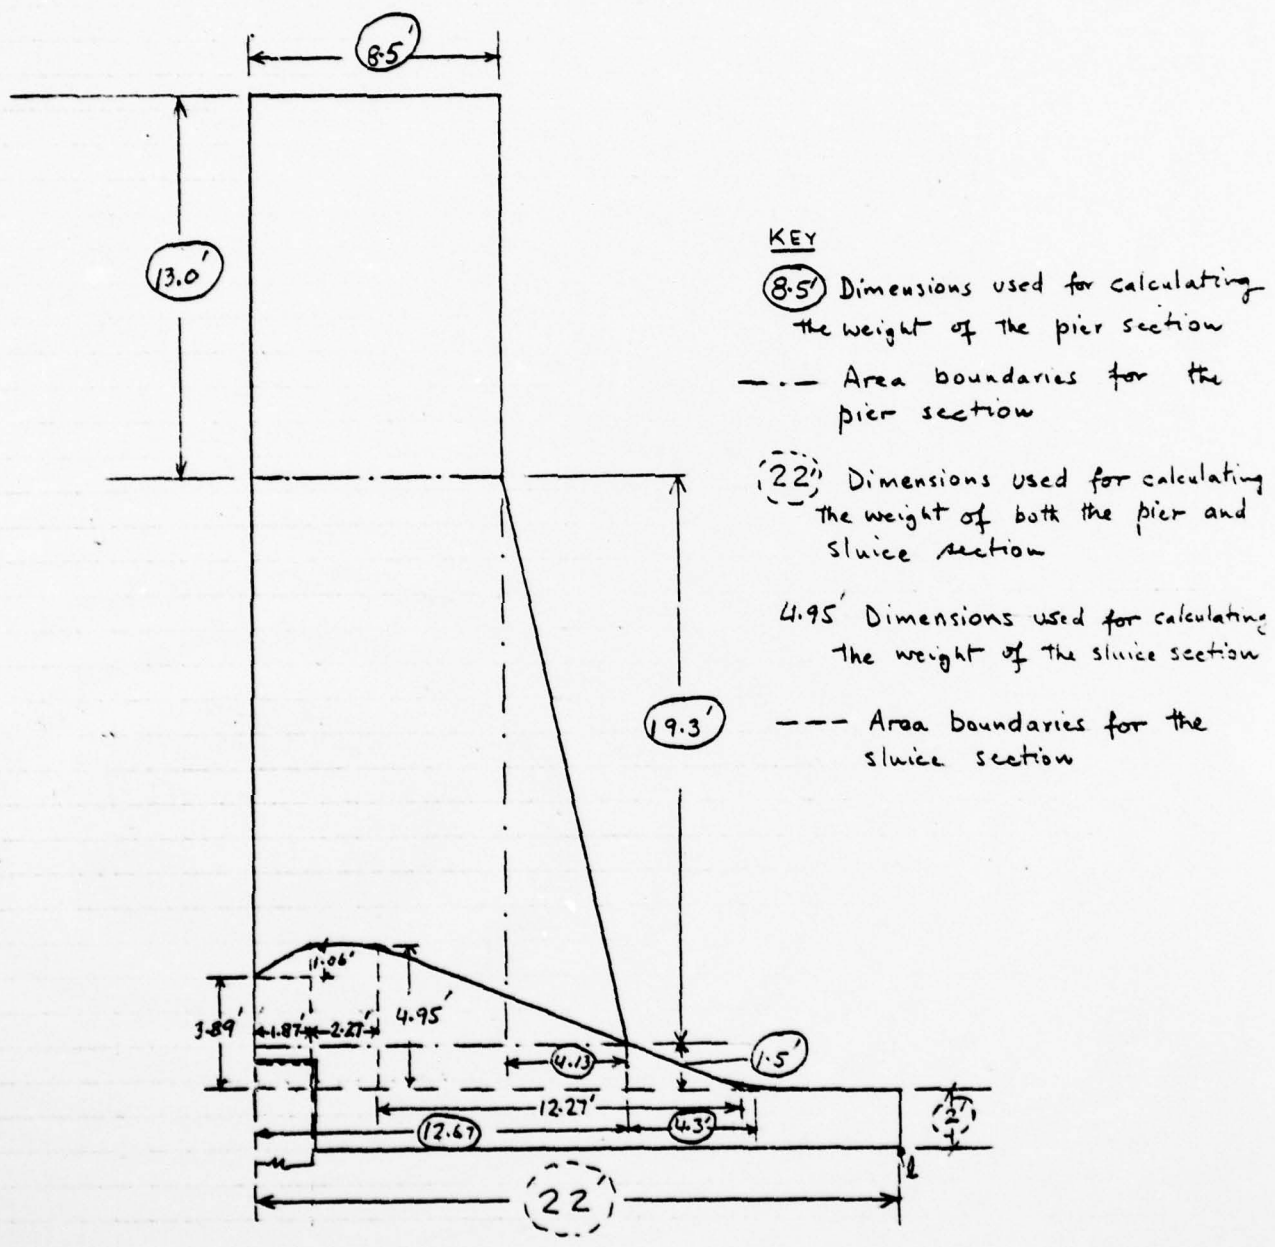 8.5'
13.0'
KEY
8.5' Dimensions used for calculating
the weight of the pier section
Area boundaries for the
pier section
22' Dimensions used for calculating
the weight of both the pier and
sluice section
4.95' Dimensions used for calculating
the weight of the sluice section
Area boundaries for the
sluice section
19.3'
1.06'
3.89'
1.87'
2.27'
4.95'
4.13
1.5'
12.27'
12.67
4.3'
2'
22'